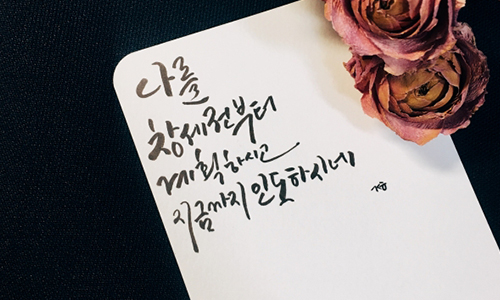 나를
창세전부터
계획하시고
지금까지 인도하시네